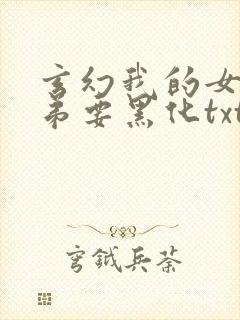 玄幻我的女
弟要黑化txt
穹钺兵荼